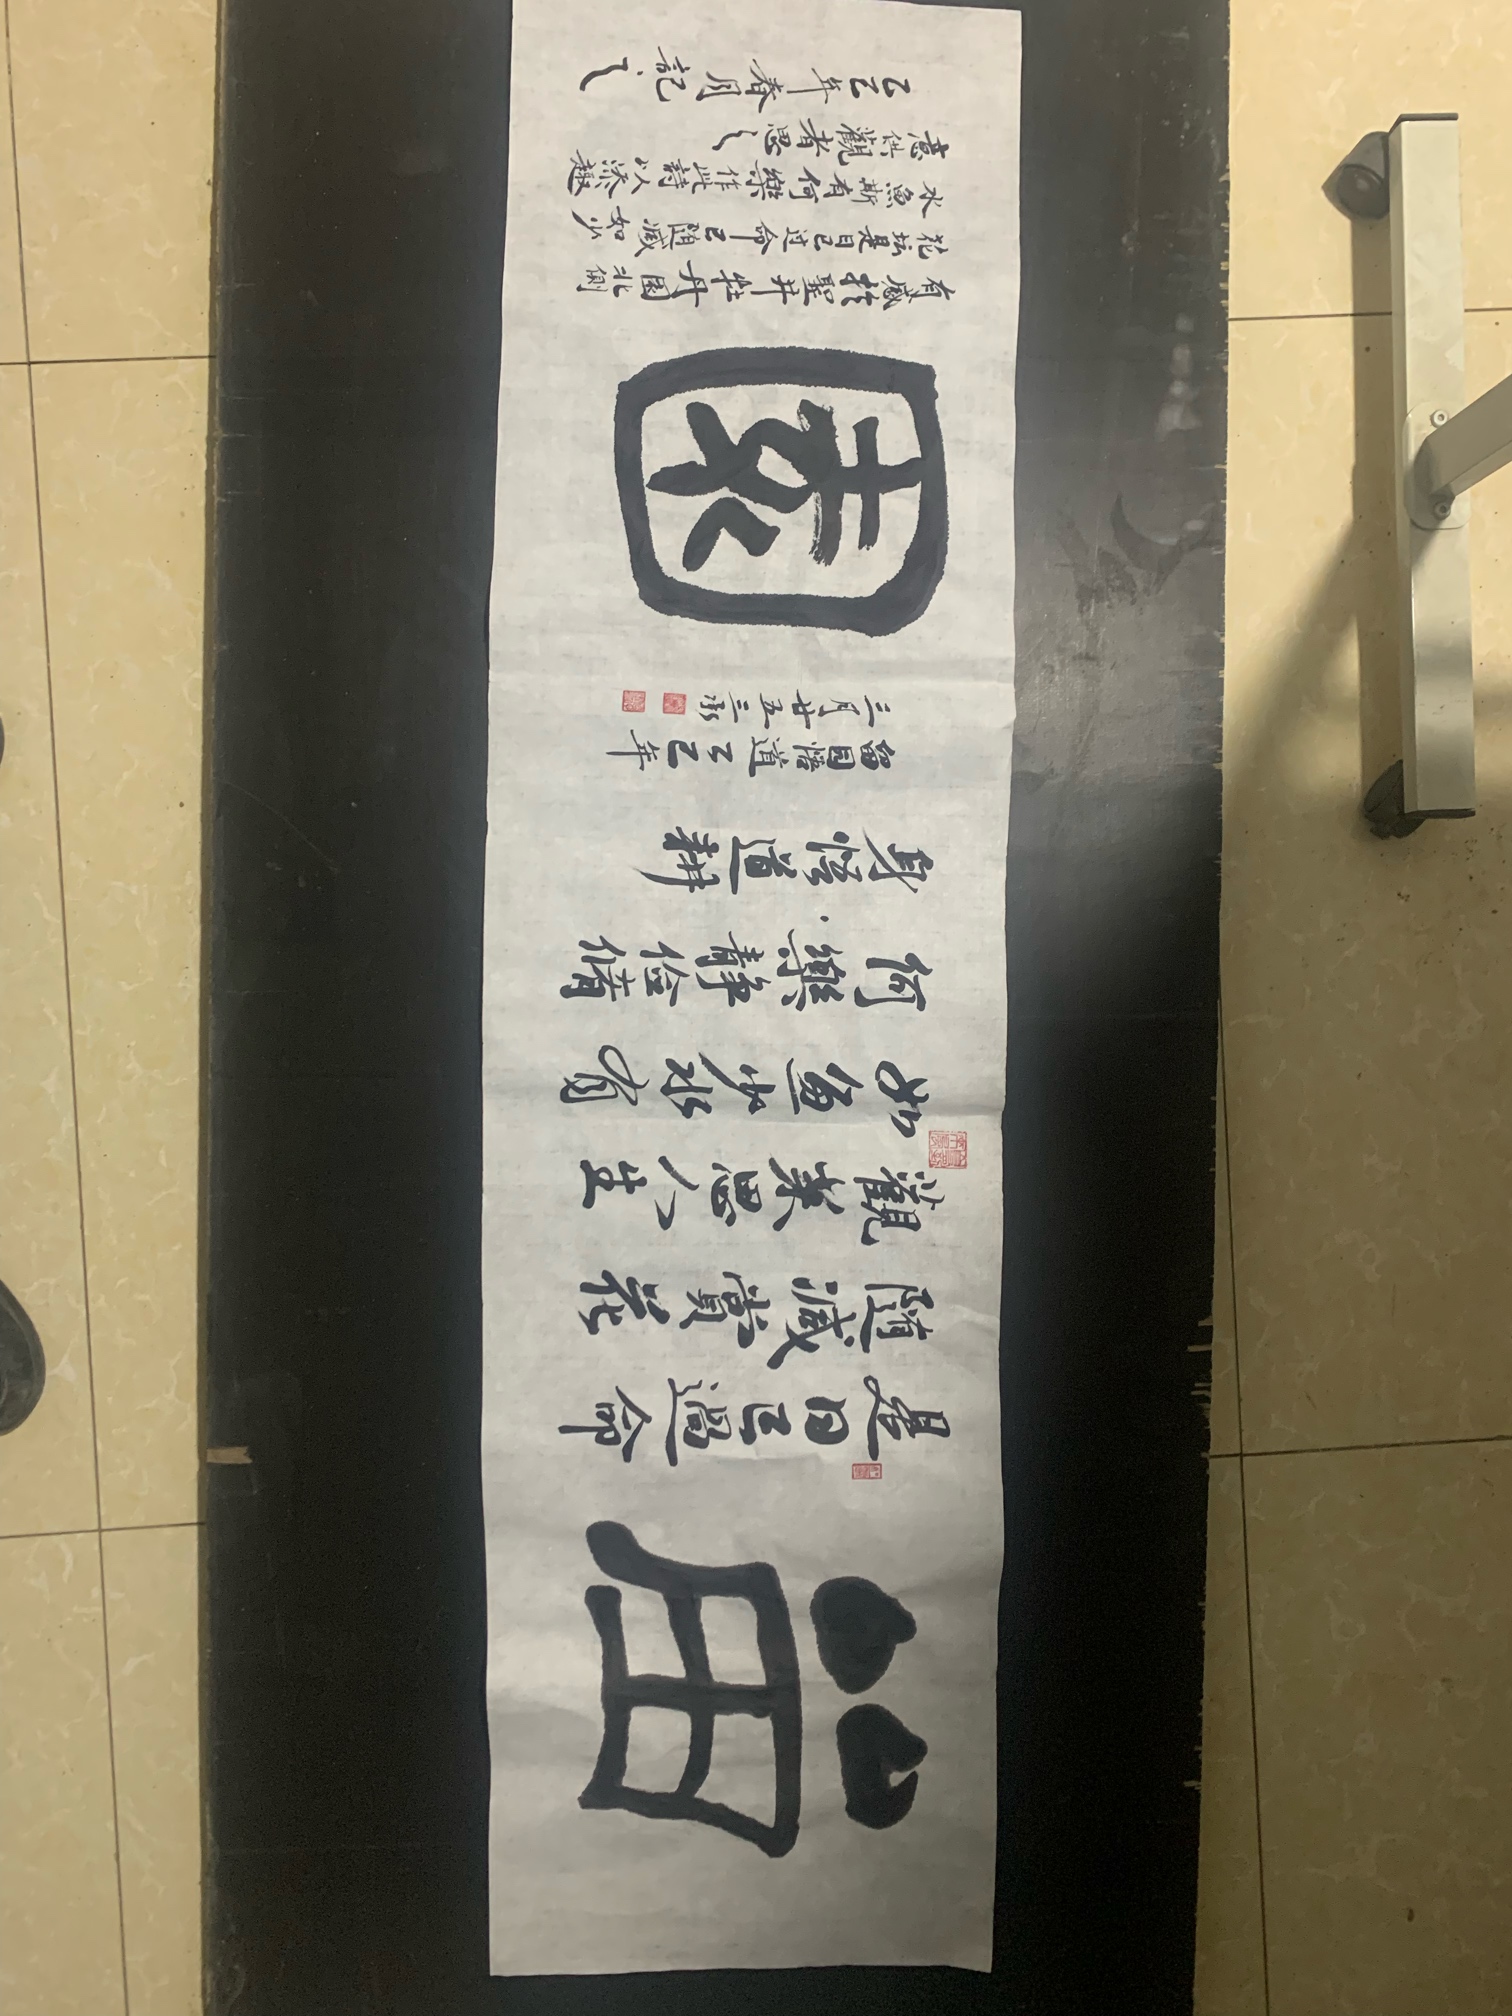 留
是日已過命
隨減賞花
觀葉思人生
如魚少水有
何樂靜儉脩
身悟道耕
留園悟道乙巳年
三月廿五
園
有感於聖井牡丹園北側
花坛是日已过命已随减如少
水魚斯有何樂作此詩以添趣
意供觀者思之
乙巳年春月記之